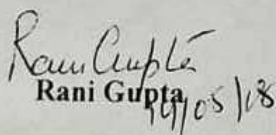 Rani Gupta
Rani Gupta
14/05/18